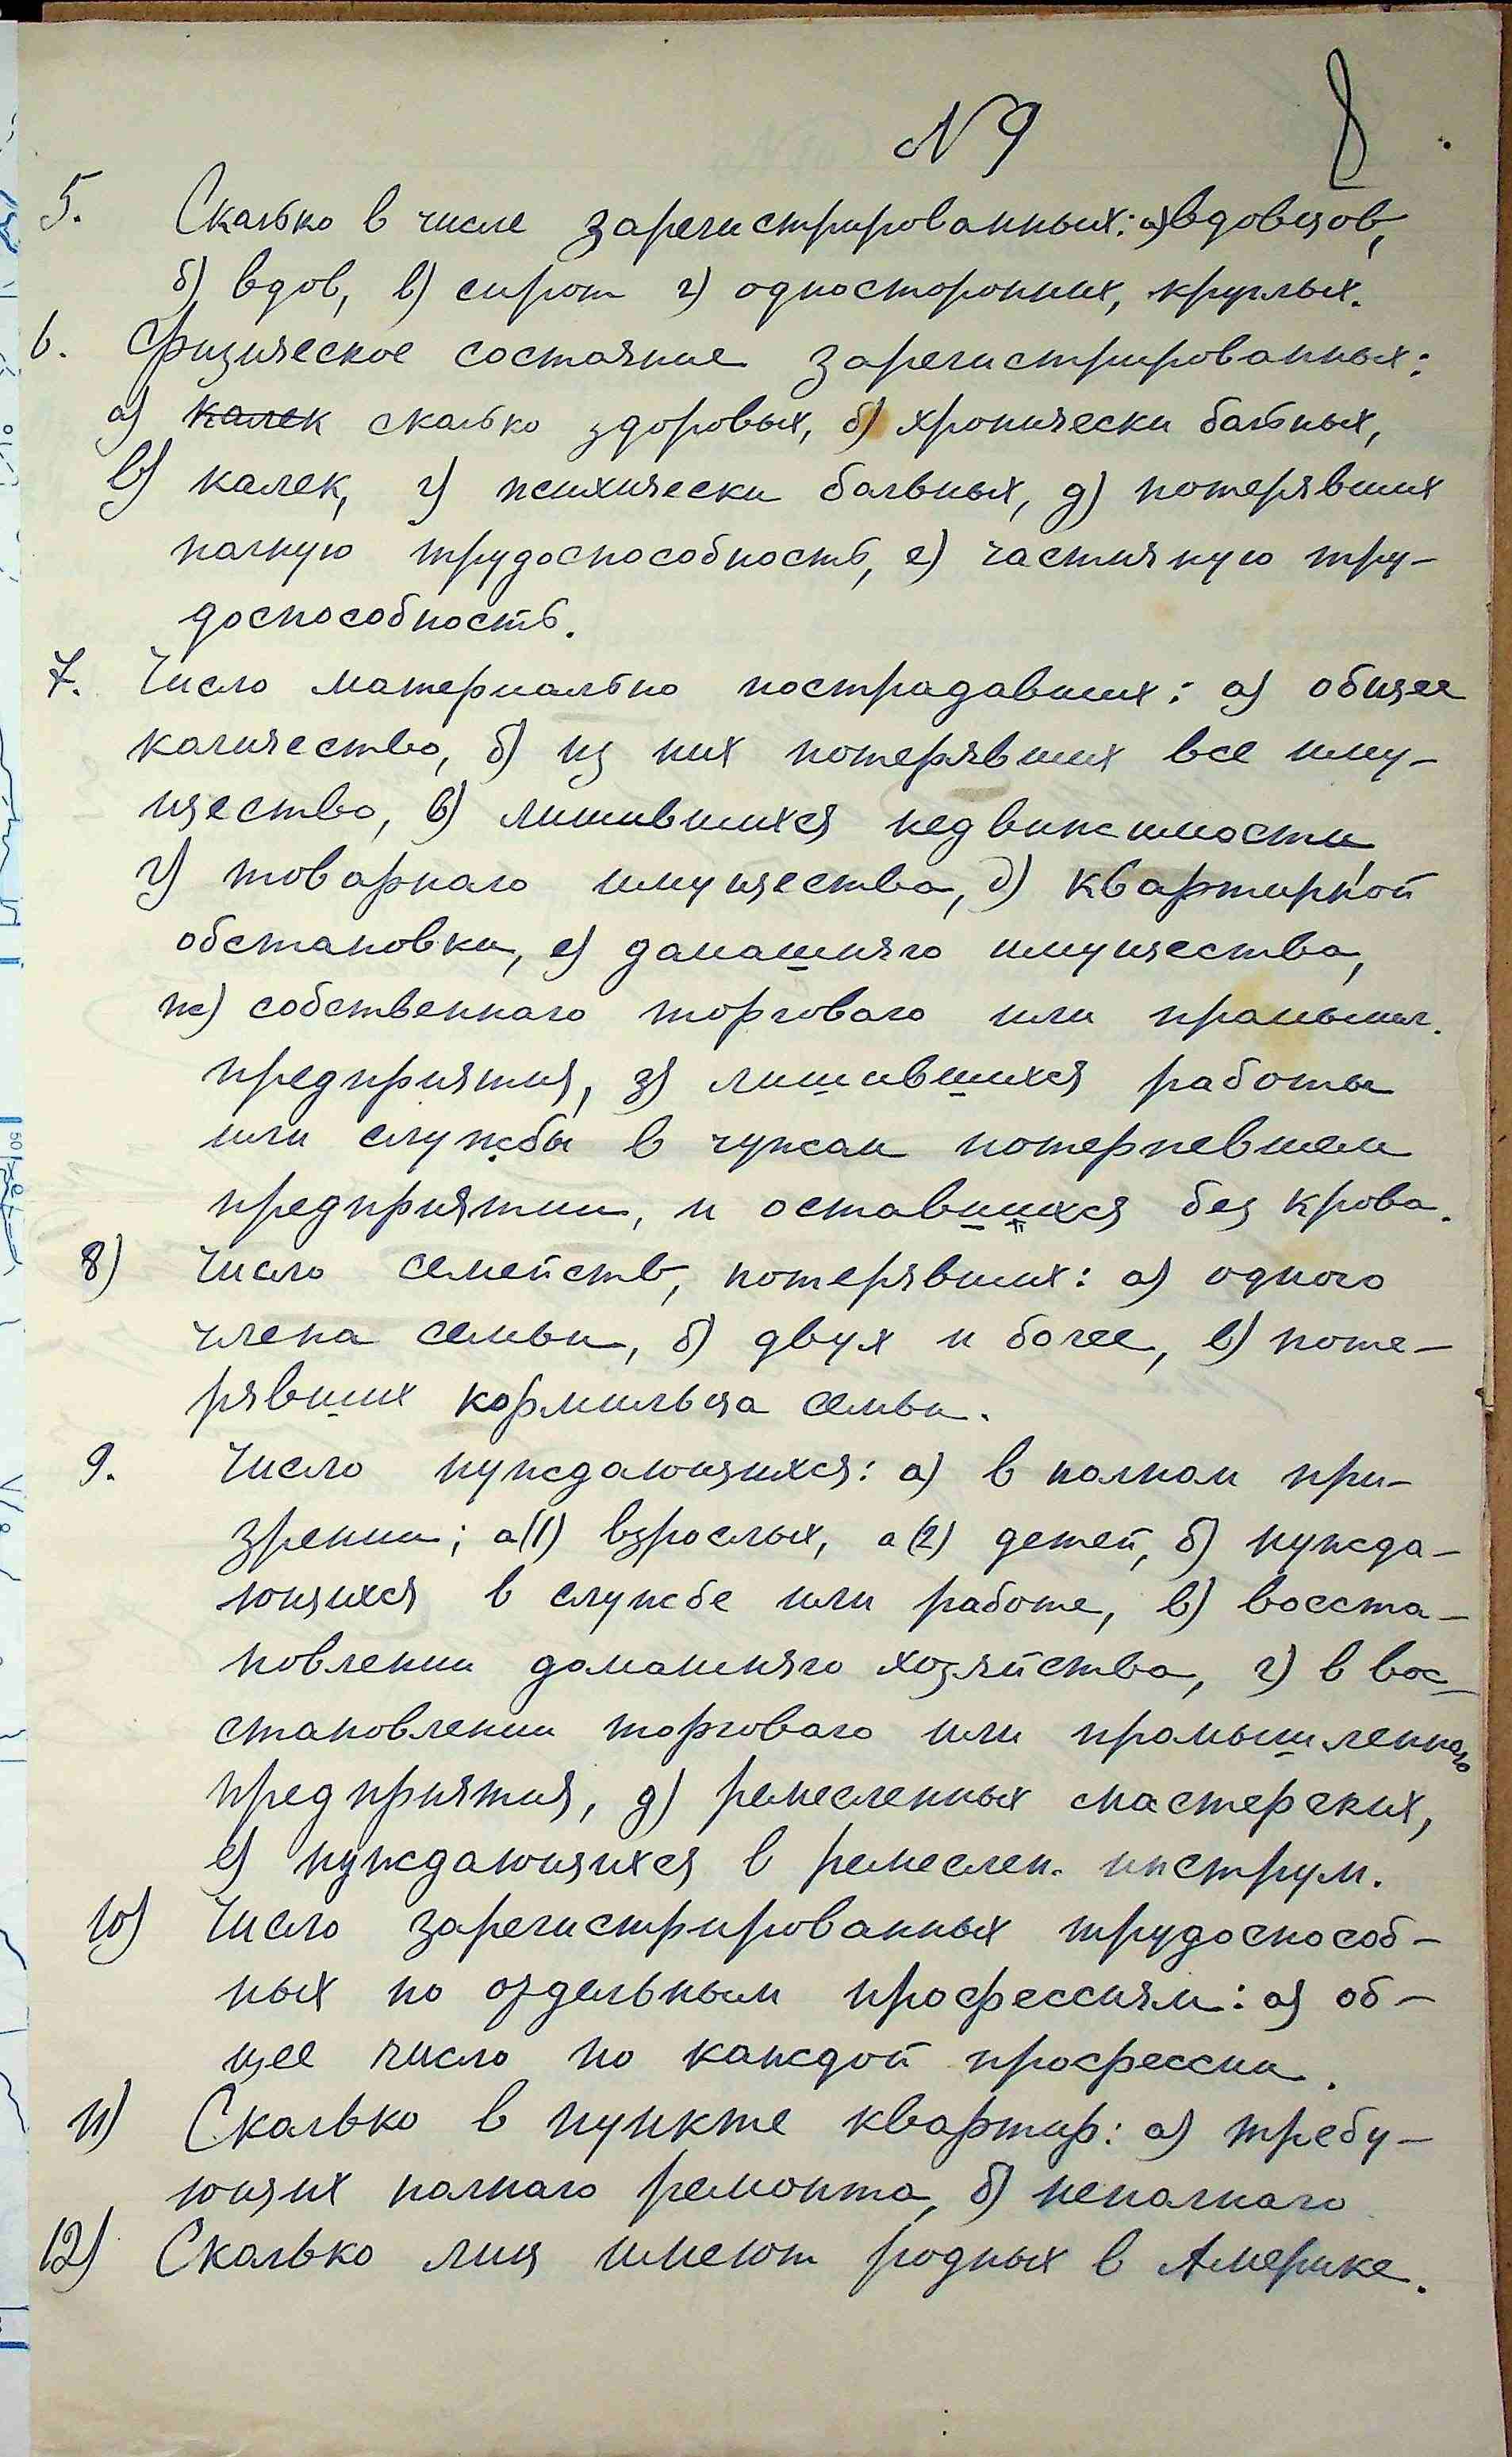 N 9 8
5. Сколько в числе зарегистрированных: а) вдовцов,
б) вдов, в) сирот г) односторонних, круглых.
6. Физическое состояние зарегистрированных:
а) калек сколько здоровых, б) хронически больных,
в) калек, г) психически больных, д) потерявших
полную трудоспособность, е) частичную тру-
доспособность.
7. Число материально пострадавших: а) общее
количество, б) из них потерявших все иму-
щество, в) лишившихся недвижимости,
г) товарнаго имущества, д) квартирной
обстановки, е) домашняго имущества,
ж) собственнаго торговаго или промышл.
предприятия, з) лишившихся работы
или службы в чужом потерпевшем
предприятии, и оставшихся без крова.
8) Число семейств, потерявших: а) одного
члена семьи, б) двух и более, в) поте-
рявших кормильца семьи.
9. Число нуждающихся: а) в полном при-
зрении; а(1) взрослых, а(2) детей, б) нужда-
ющихся в службе или работе, в) восста-
новлении домашняго хозяйства, г) в вос-
становлении торговаго или промышленнаго
предприятия, д) ремесленных мастерских,
е) нуждающихся в ремеслен. инструм.
10) Число зарегистрированных трудоспособ-
ных по отдельным профессиям: а) об-
щее число по каждой профессии.
11) Сколько в пункте квартир: а) требу-
ющих полнаго ремонта, б) неполнаго
12) Сколько лиц имеют родных в Америке.